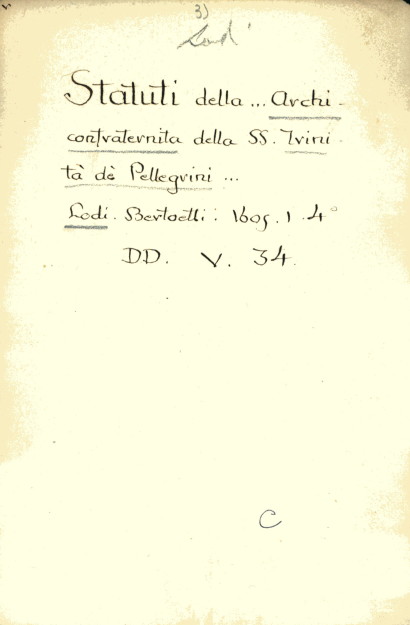 3)
Lodi
Statuti della ... Archi-
confraternita della SS. Trini-
tà dè Pellegrini ...
Lodi. Bertoetti: 1605. 1. 4°
DD. V. 34.
C